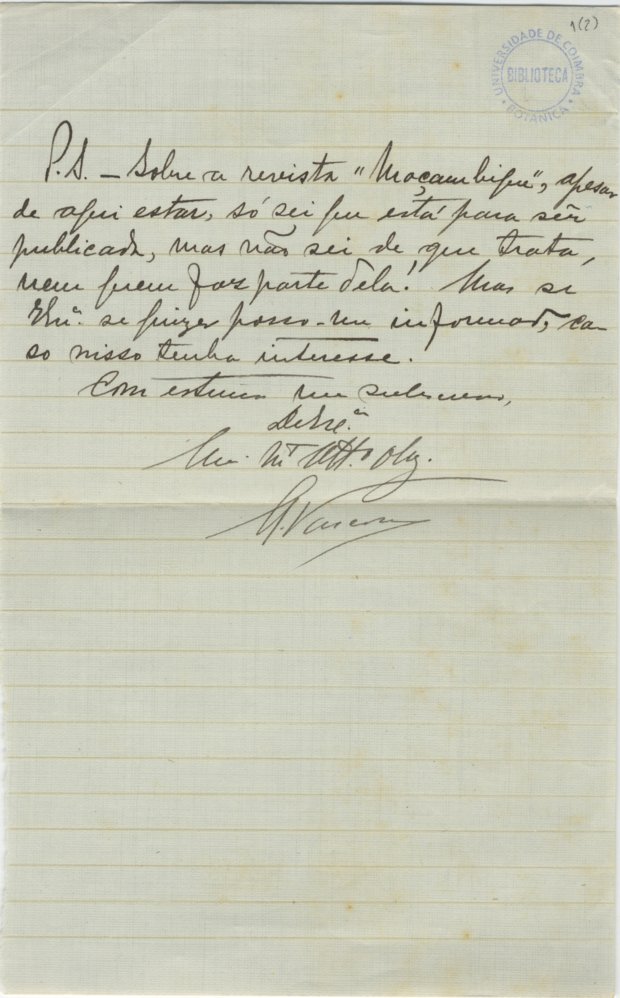 1(2)
UNIVERSIDADE DE COIMBRA
BIBLIOTECA
BOTANICA
P.S. — Sobre a revista "Moçambique", apesar
de aqui estar, só sei que está para sêr
publicada, mas não sei de que trata,
nem quem faz parte dela! Mas se
Exª. se quizer posso-me informar, ca-
so nisso tenha interesse.
Com estima me subscrevo,
De V. Exª.
Mt Attº Obg.